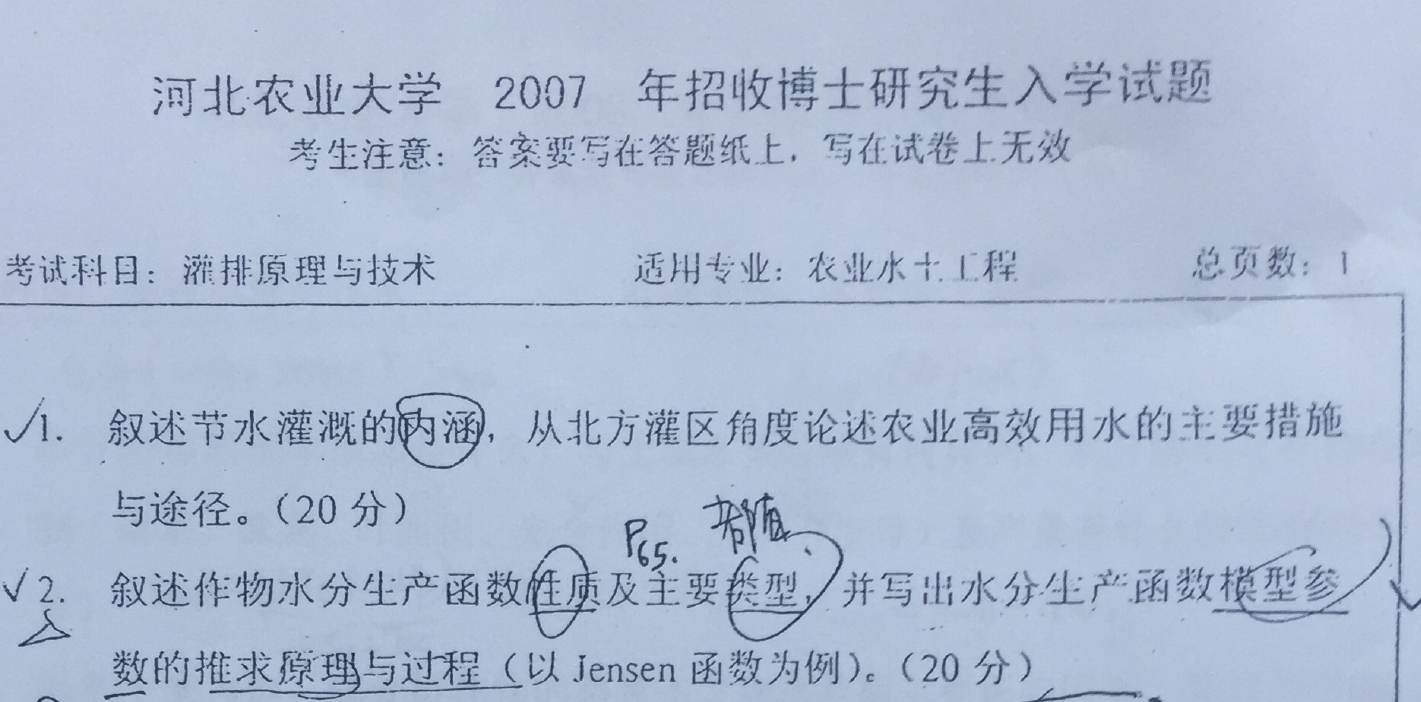 河北农业大学 2007 年招收博士研究生入学试题
考生注意：答案要写在答题纸上，写在试卷上无效
考试科目：灌排原理与技术 适用专业：农业水土工程 总页数：1
√1. 叙述节水灌溉的内涵，从北方灌区角度论述农业高效用水的主要措施
与途径。（20 分）
P65.
√2. 叙述作物水分生产函数性质及主要类型，并写出水分生产函数模型参
数的推求原理与过程（以 Jensen 函数为例）。（20 分）